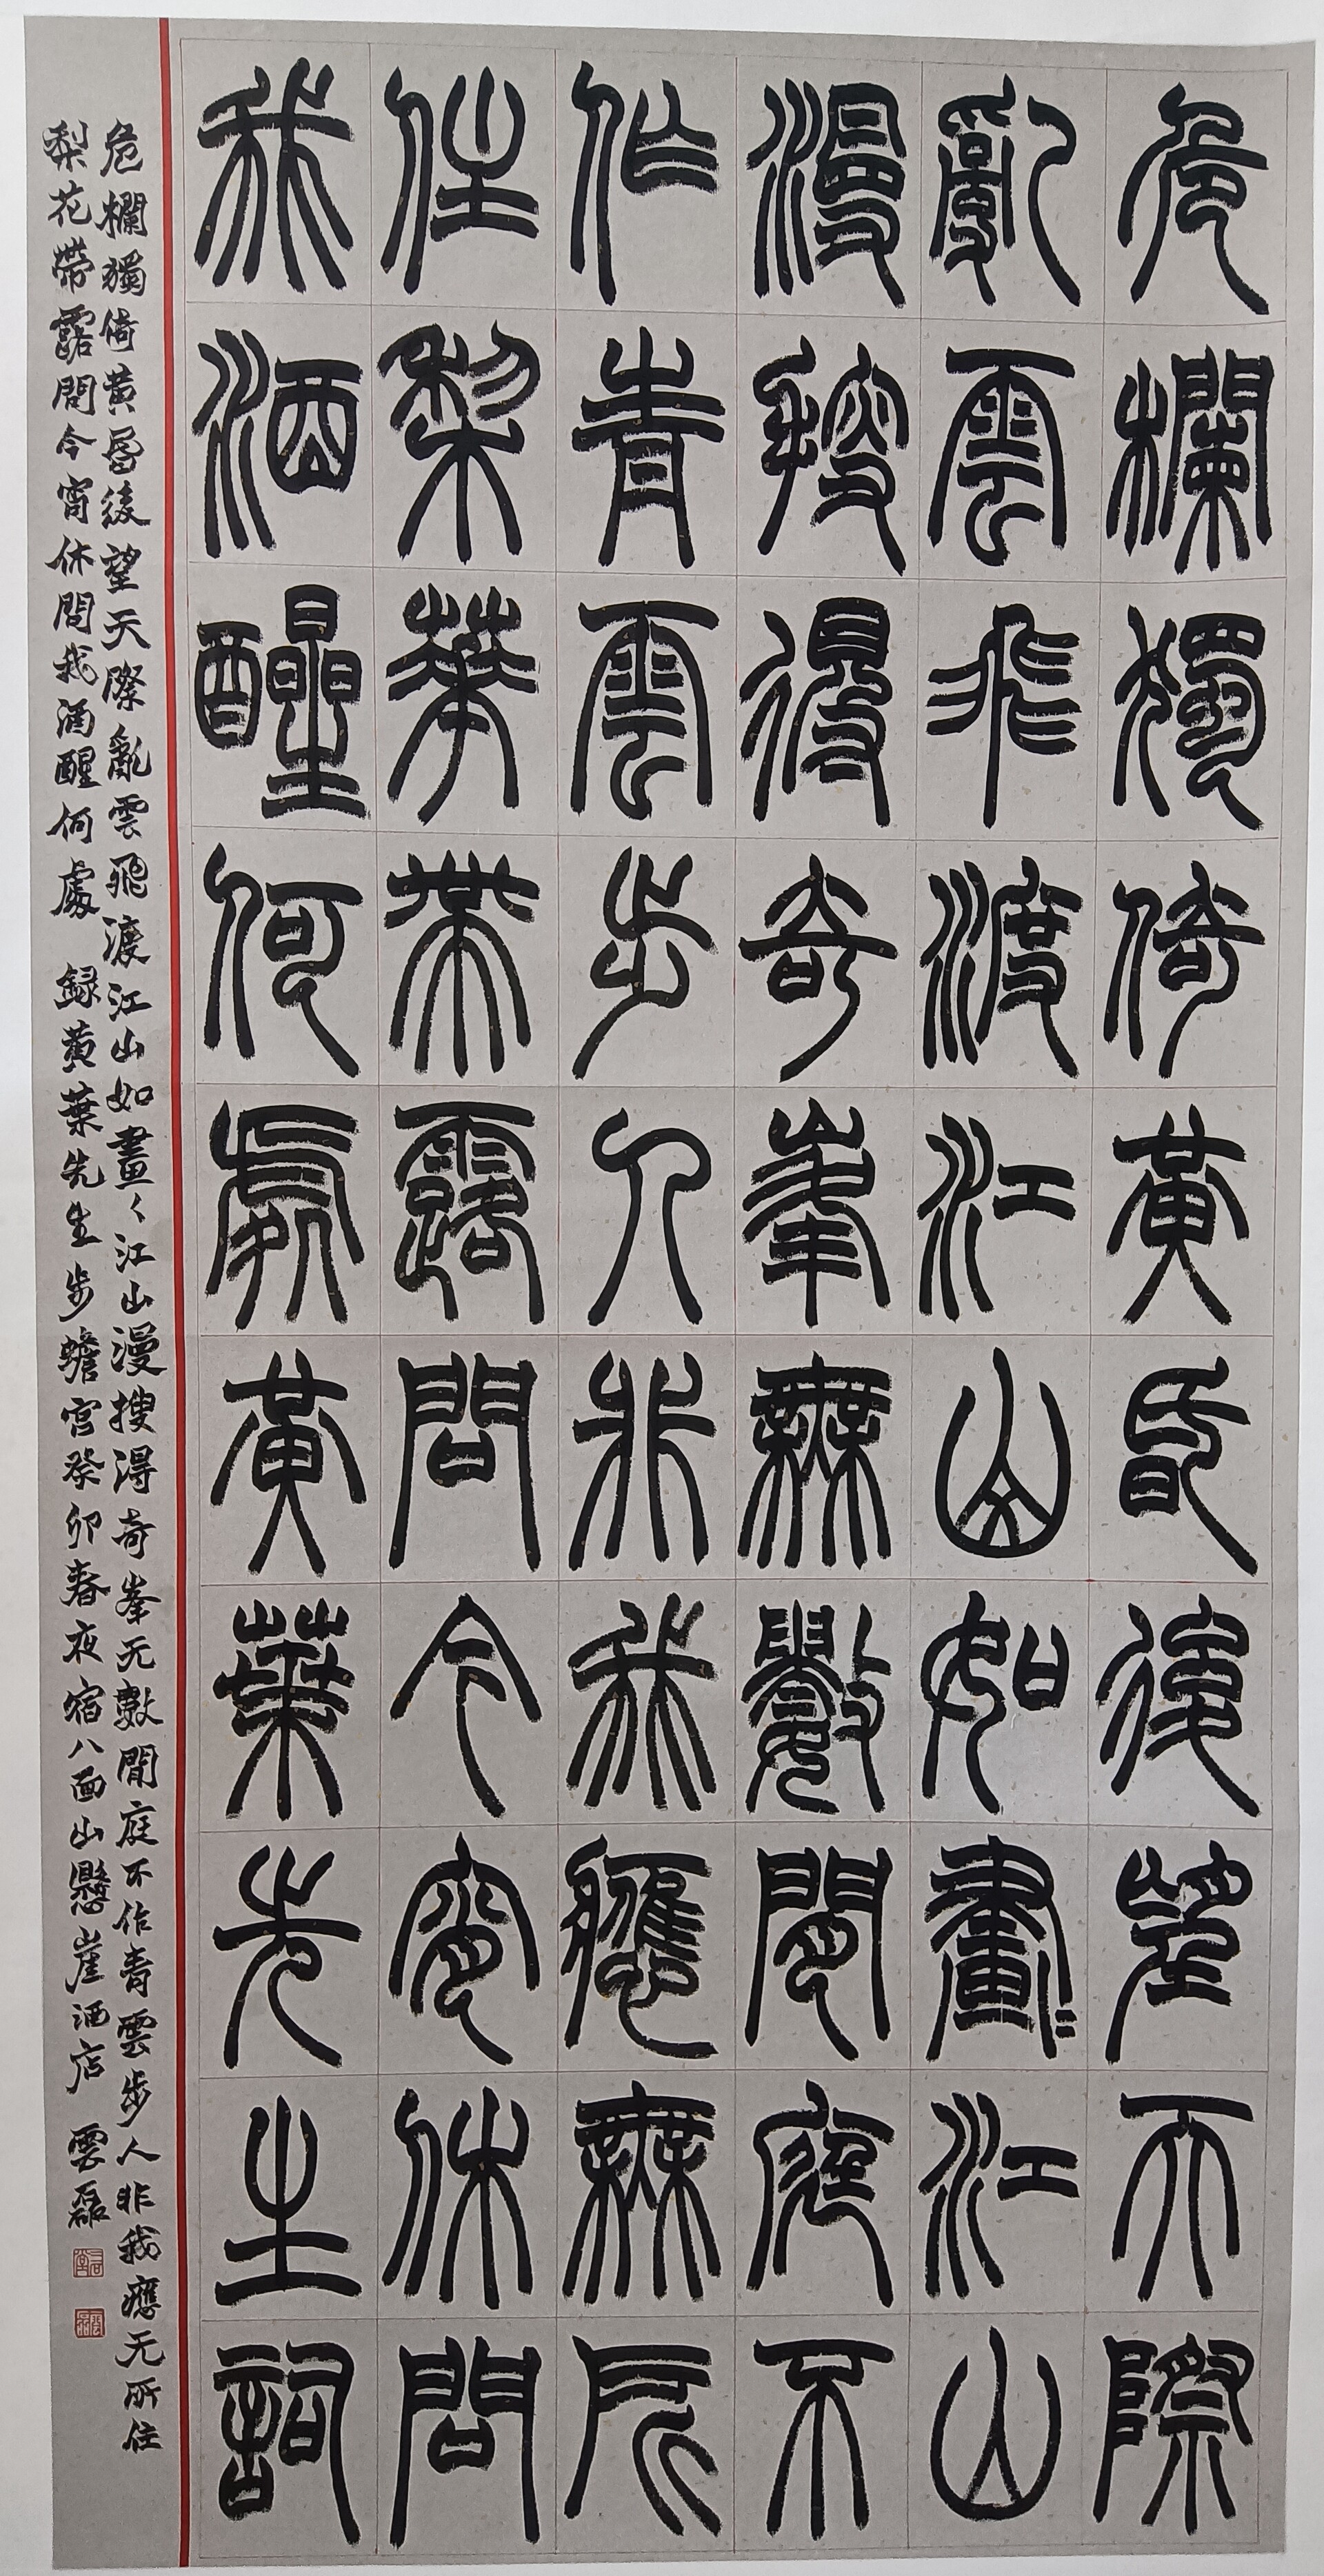 危欄獨倚黃昏後望天際
亂雲飛渡江山如畫〻江山
漫搜得奇峯無數閒庭不
作青雲步人非我應無所
住梨華帶露問今宵休問
我酒醒何處黃葉先生詞
危欄獨倚黃昏後望天際亂雲飛渡江山如畫〻江山漫搜得奇峯无數閒庭不作青雲步人非我應无所住
梨花帶露問今宵休問我酒醒何處 録黃葉先生步蟾宮癸卯春夜宿八面山懸崖酒店 雲磊